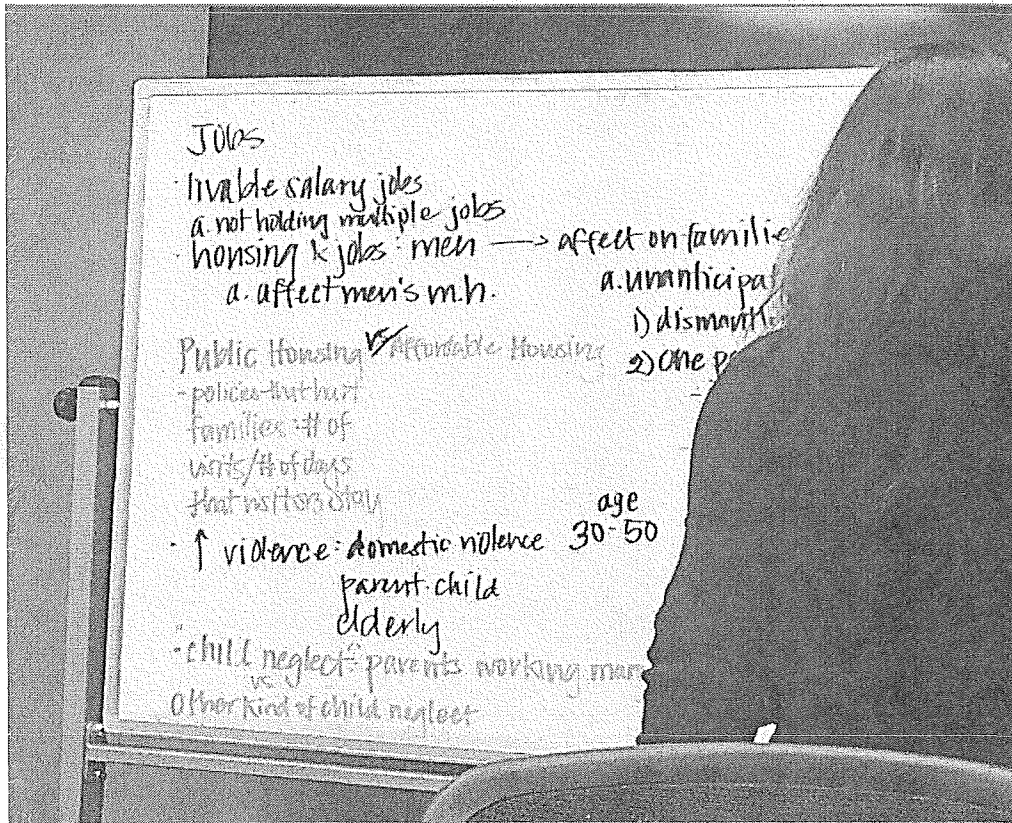 Jobs
· livable salary jobs
a. not holding multiple jobs
· housing & jobs : men —> affect on familie
a. affect men's m.h.
a. unanticipat
1) dismantl
2) One p
Public Housing vs Affordable Housing
- polices that hurt
families : # of
visits/# of days
that visitors stay
· ↑ violence : domestic violence
parent-child
elderly
age
30-50
· "child neglect": parents working man
vs.
Other kind of child neglect